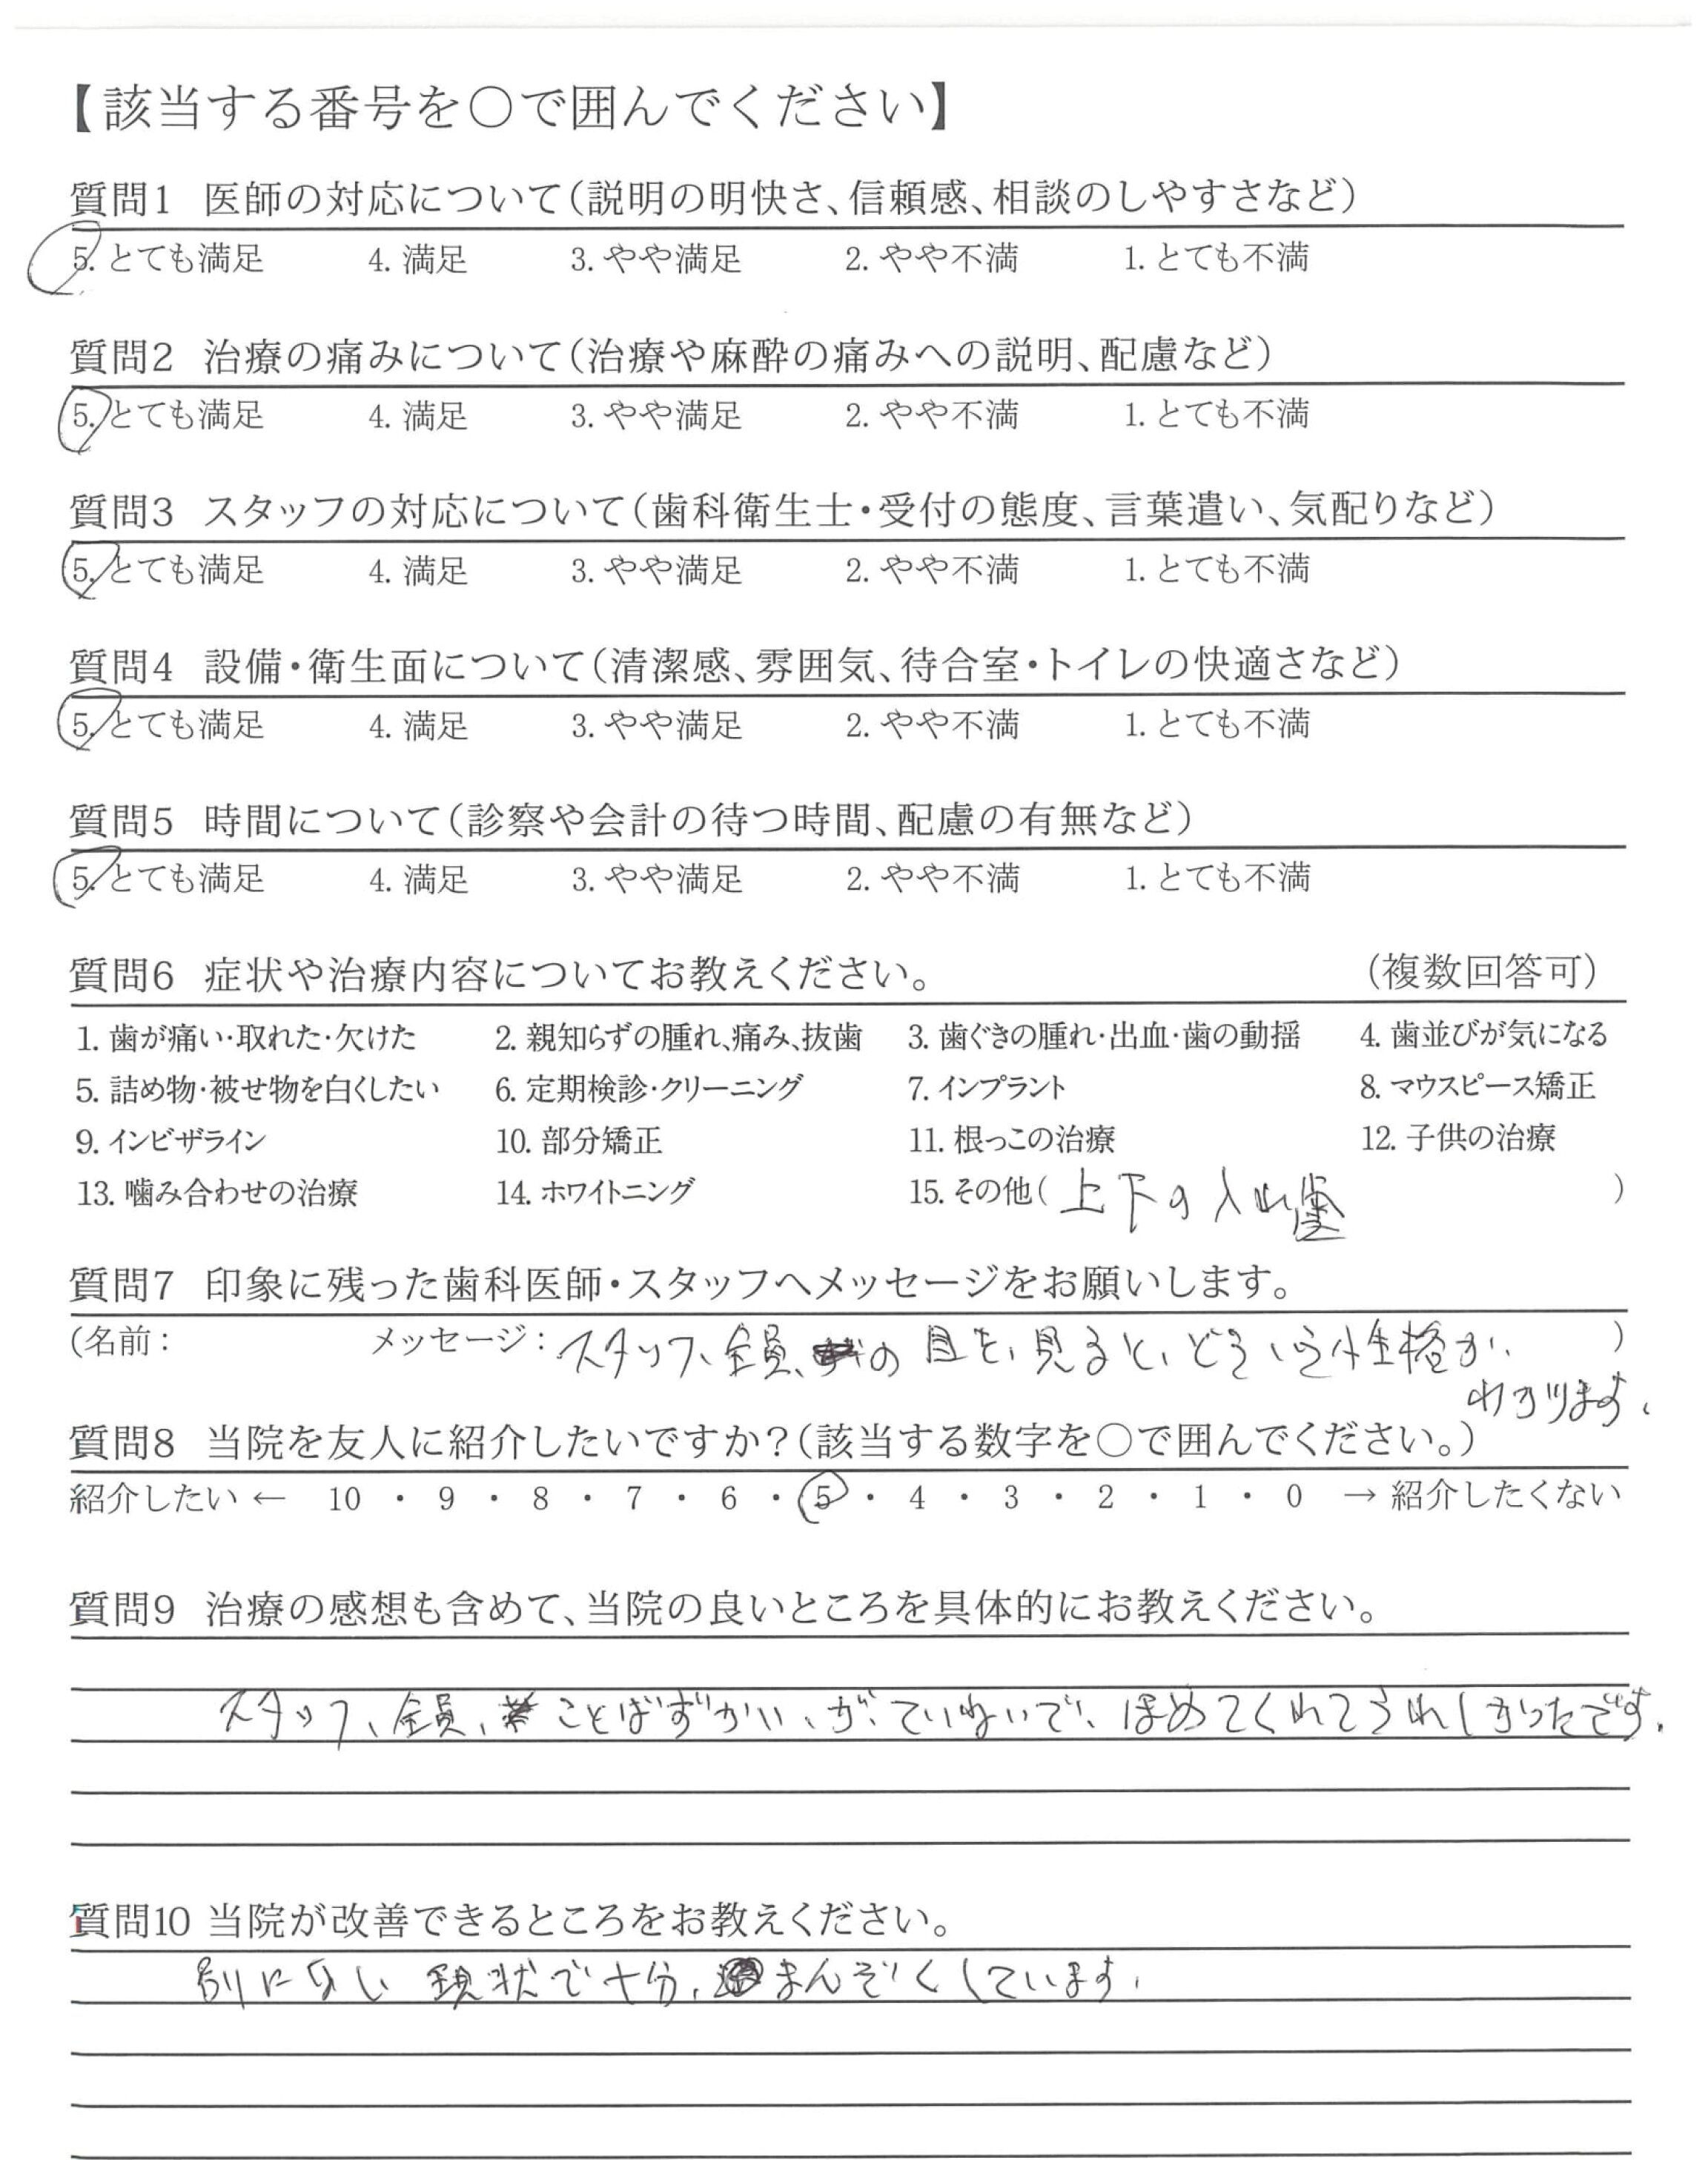 【該当する番号を○で囲んでください】
質問1 医師の対応について(説明の明快さ、信頼感、相談のしやすさなど)
5. とても満足 4. 満足 3. やや満足 2. やや不満 1. とても不満
質問2 治療の痛みについて(治療や麻酔の痛みへの説明、配慮など)
5. とても満足 4. 満足 3. やや満足 2. やや不満 1. とても不満
質問3 スタッフの対応について(歯科衛生士・受付の態度、言葉遣い、気配りなど)
5. とても満足 4. 満足 3. やや満足 2. やや不満 1. とても不満
質問4 設備・衛生面について(清潔感、雰囲気、待合室・トイレの快適さなど)
5. とても満足 4. 満足 3. やや満足 2. やや不満 1. とても不満
質問5 時間について(診察や会計の待つ時間、配慮の有無など)
5. とても満足 4. 満足 3. やや満足 2. やや不満 1. とても不満
質問6 症状や治療内容についてお教えください。 (複数回答可)
1. 歯が痛い・取れた・欠けた 2. 親知らずの腫れ、痛み、抜歯 3. 歯ぐきの腫れ・出血・歯の動揺 4. 歯並びが気になる
5. 詰め物・被せ物を白くしたい 6. 定期検診・クリーニング 7. インプラント 8. マウスピース矯正
9. インビザライン 10. 部分矯正 11. 根っこの治療 12. 子供の治療
13. 噛み合わせの治療 14. ホワイトニング 15. その他( 上下の入れ歯 )
質問7 印象に残った歯科医師・スタッフへメッセージをお願いします。
(名前: メッセージ: スタッフ、全員、の目を、見ると、どういう性格か、 )
わかります、
質問8 当院を友人に紹介したいですか?(該当する数字を○で囲んでください。)
紹介したい ← 10 ・ 9 ・ 8 ・ 7 ・ 6 ・ 5 ・ 4 ・ 3 ・ 2 ・ 1 ・ 0 → 紹介したくない
質問9 治療の感想も含めて、当院の良いところを具体的にお教えください。
スタッフ、全員、ことばずかい、が、ていねいで、ほめてくれてうれしかったです。
質問10 当院が改善できるところをお教えください。
別にない 現状で十分、まんぞくしています。